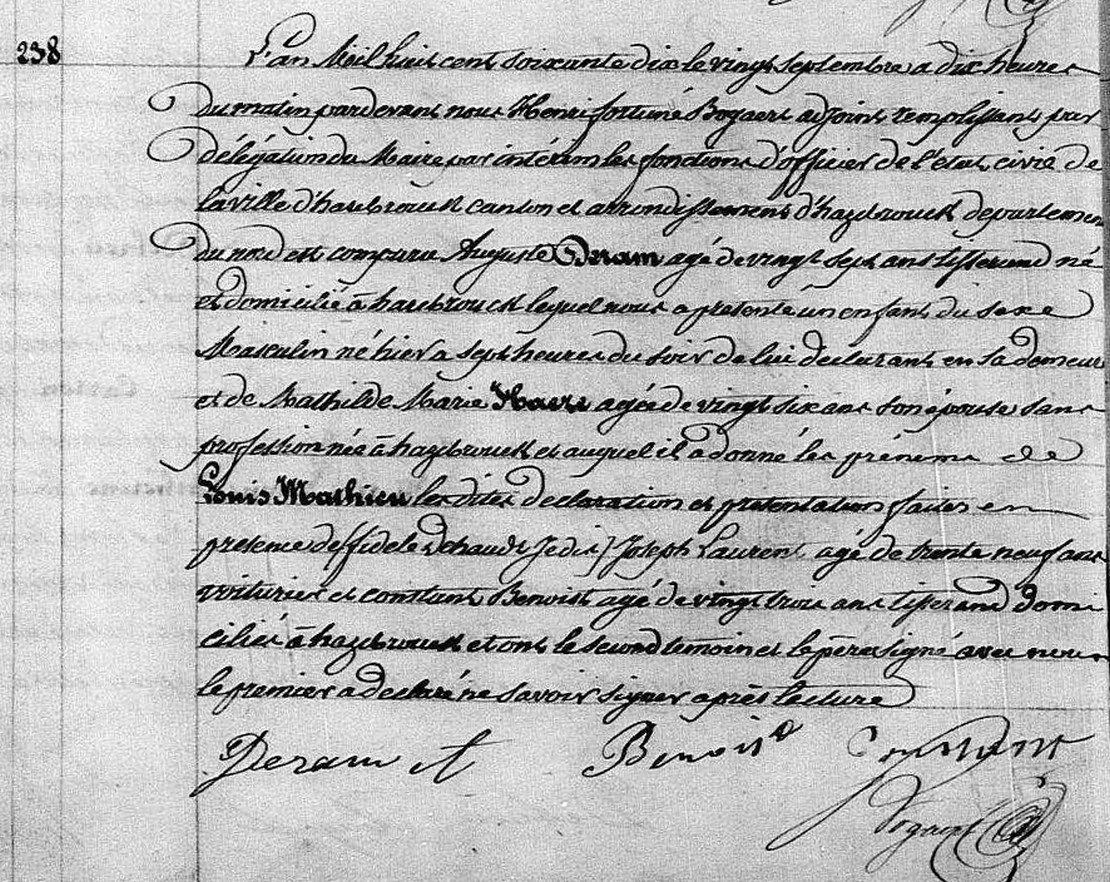 238
L'an Mil huit cent soixante dix le vingt septembre a dix heures
du matin pardevant nous Henri fortuné Bogaert adjoint remplissant par
délégation du Maire par intérim les fonctions d'officier de l'état civil de
la ville d'hazebrouck canton et arrondissement d'hazebrouck departement
du nord est comparu Auguste Deram agé de vingt sept ans tisserand né
et domicilié à hazebrouck lequel nous a presenté un enfant du sexe
Masculin né hier a sept heures du soir de lui declarant en sa demeure
et de Mathilde Marie agée de vingt six ans son épouse sans
profession née à hazebrouck et auquel il a donné les prénoms de
Louis Mathieu les dites declaration et presentation faites en
presence de Joseph Laurent agé de trente neuf ans
voiturier et constant Benoist agé de vingt trois ans tisserand domi
ciliés à hazebrouck et ont le second temoin et le père signé avec nous
le premier a declaré ne savoir signer après lecture
Deram A Benoist Constant
Bogaert